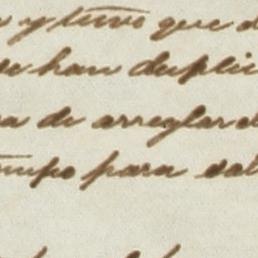 y tuvo que d
e han duplic
a de arreglar e
empo para sal